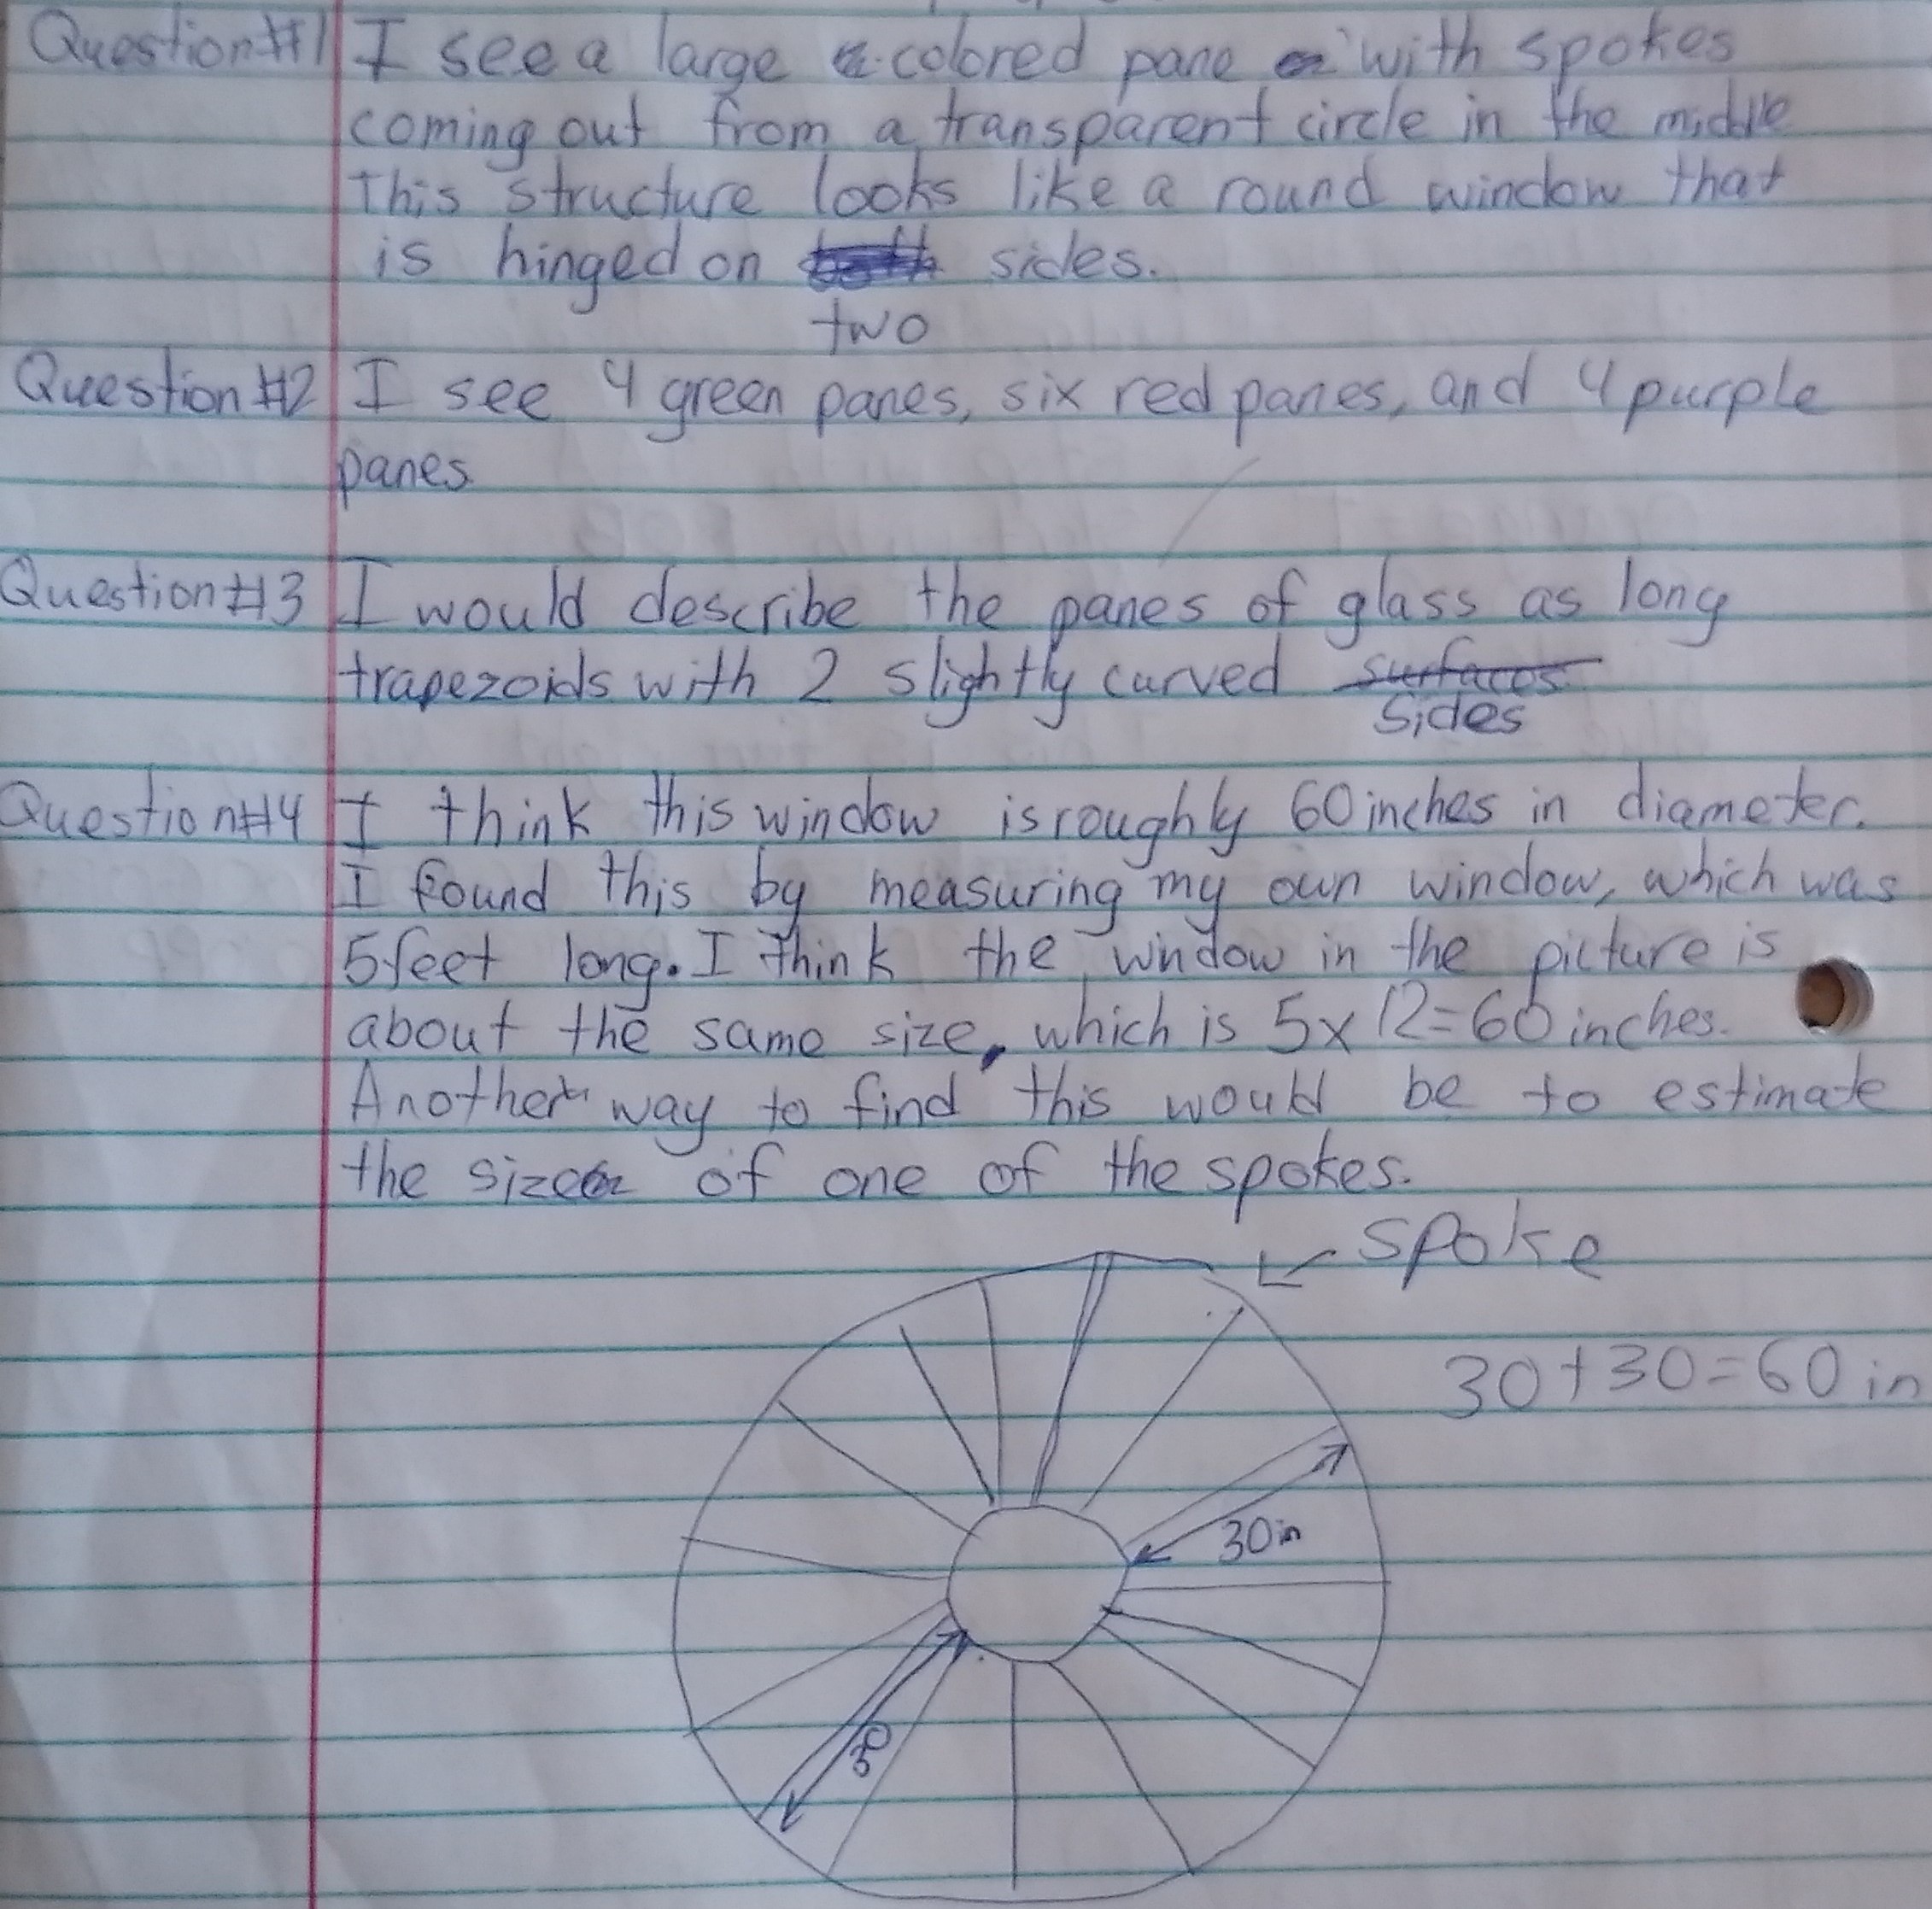 Question#1 I see a large colored pane with spokes
coming out from a transparent circle in the middle
This structure looks like a round window that
is hinged on both sides.
two
Question #2 I see 4 green panes, six red panes, and 4 purple
panes
Question #3 I would describe the panes of glass as long
trapezoids with 2 slightly curved surfaces
sides
Question#4 I think this window is roughly 60 inches in diameter.
I found this by measuring my own window, which was
5 feet long. I think the window in the picture is
about the same size, which is 5x12=60 inches.
Another way to find this would be to estimate
the size of one of the spokes.
spoke
30+30=60 in
30in
30